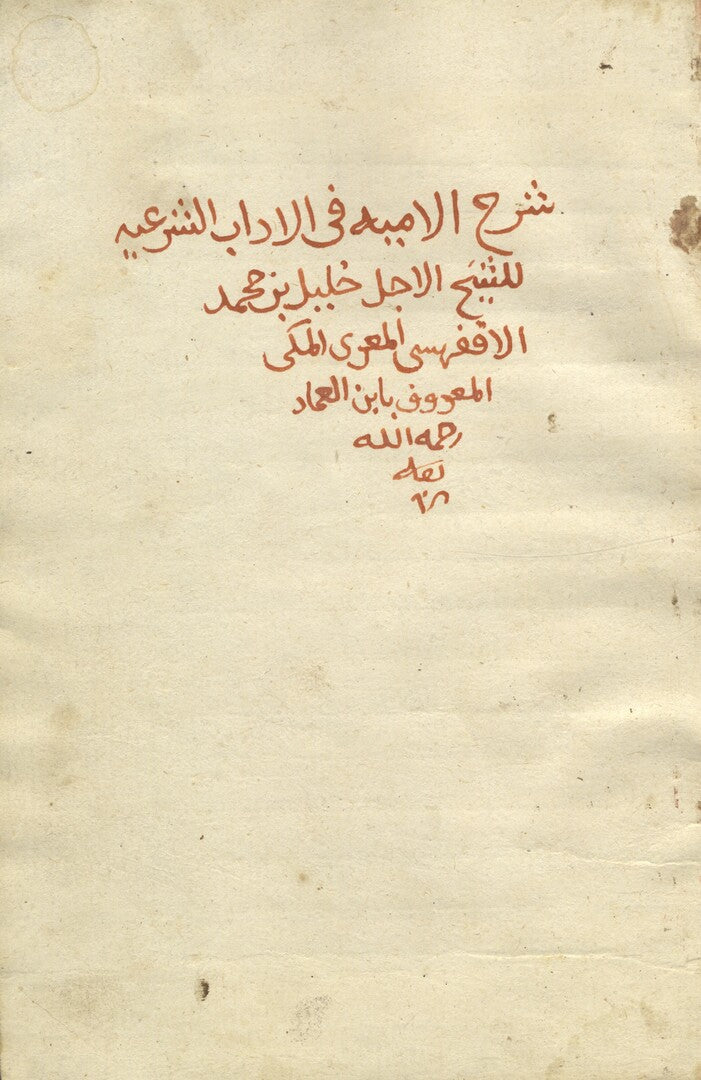 شرح الاميه فى الاداب الشرعيه
للشيخ الاجل خليل بن محمد
الاقفهسى المصرى المكى
المعروف بابن العماد
رحمه الله